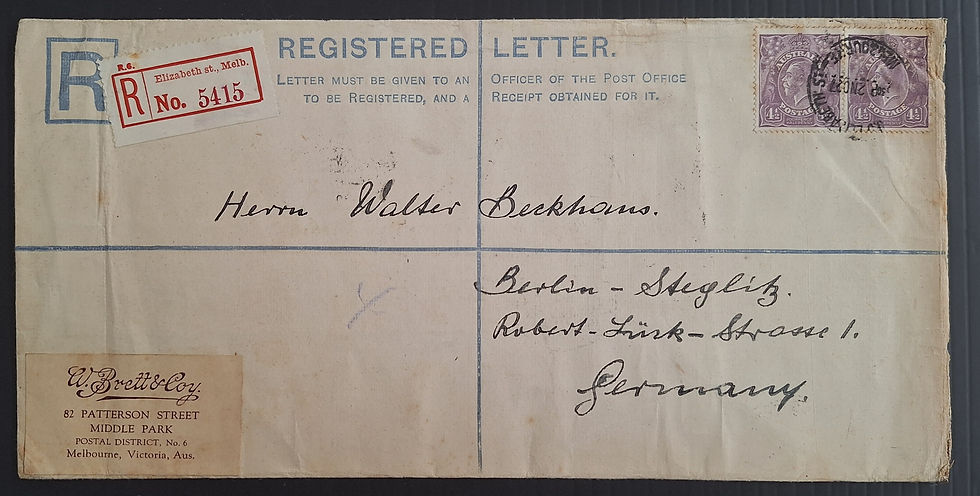 R
REGISTERED LETTER.
LETTER MUST BE GIVEN TO AN OFFICER OF THE POST OFFICE
TO BE REGISTERED, AND A RECEIPT OBTAINED FOR IT.
R.6.
R Elizabeth st., Melb.
No. 5415
AUSTRALIA
4½ POSTAGE 4½
POSTAGE 4½
MELBOURNE
Herrn Walter Beckhaus.
Berlin - Steglitz.
Robert-Lück-Strasse 1.
Germany.
W. Brett & Coy.
82 PATTERSON STREET
MIDDLE PARK
POSTAL DISTRICT, No. 6
Melbourne, Victoria, Aus.